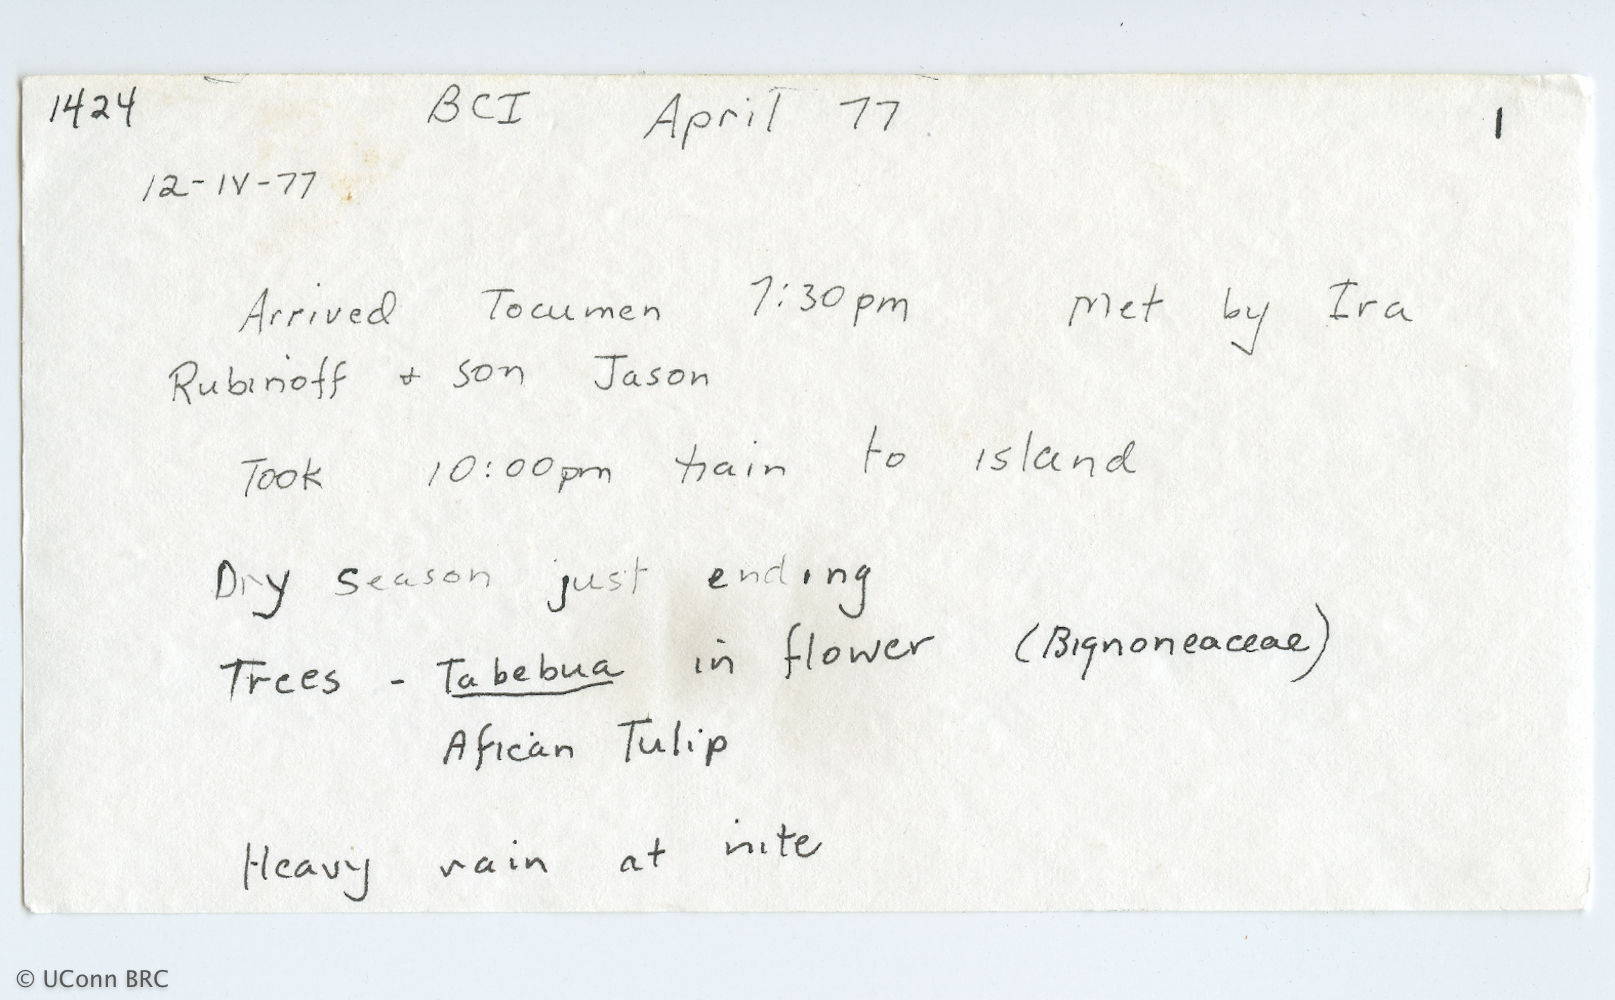 1424 BCI April 77 1
12-IV-77
Arrived Tocumen 7:30pm Met by Ira
Rubinoff + son Jason
Took 10:00pm train to island
Dry season just ending
Trees - Tabebua in flower (Bignoneaceae)
African Tulip
Heavy rain at nite
© UConn BRC